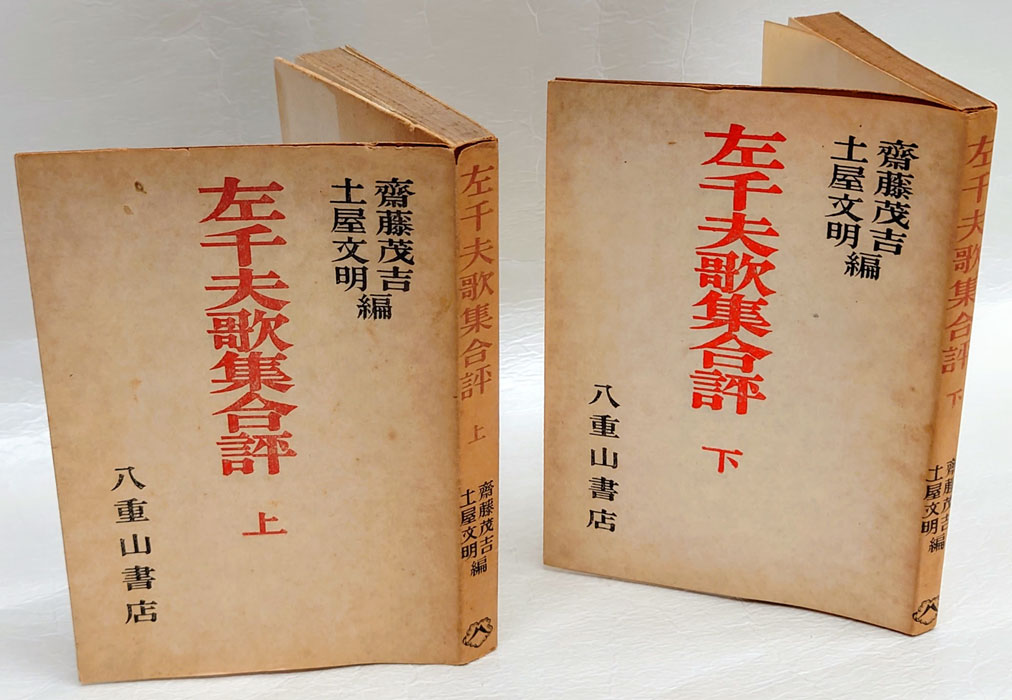 齋藤茂吉
土屋文明編
左千夫歌集合評 上
八重山書店
左千夫歌集合評 上
齋藤茂吉
土屋文明編
八
齋藤茂吉
土屋文明編
左千夫歌集合評 下
八重山書店
左千夫歌集合評 下
齋藤茂吉
土屋文明編
八